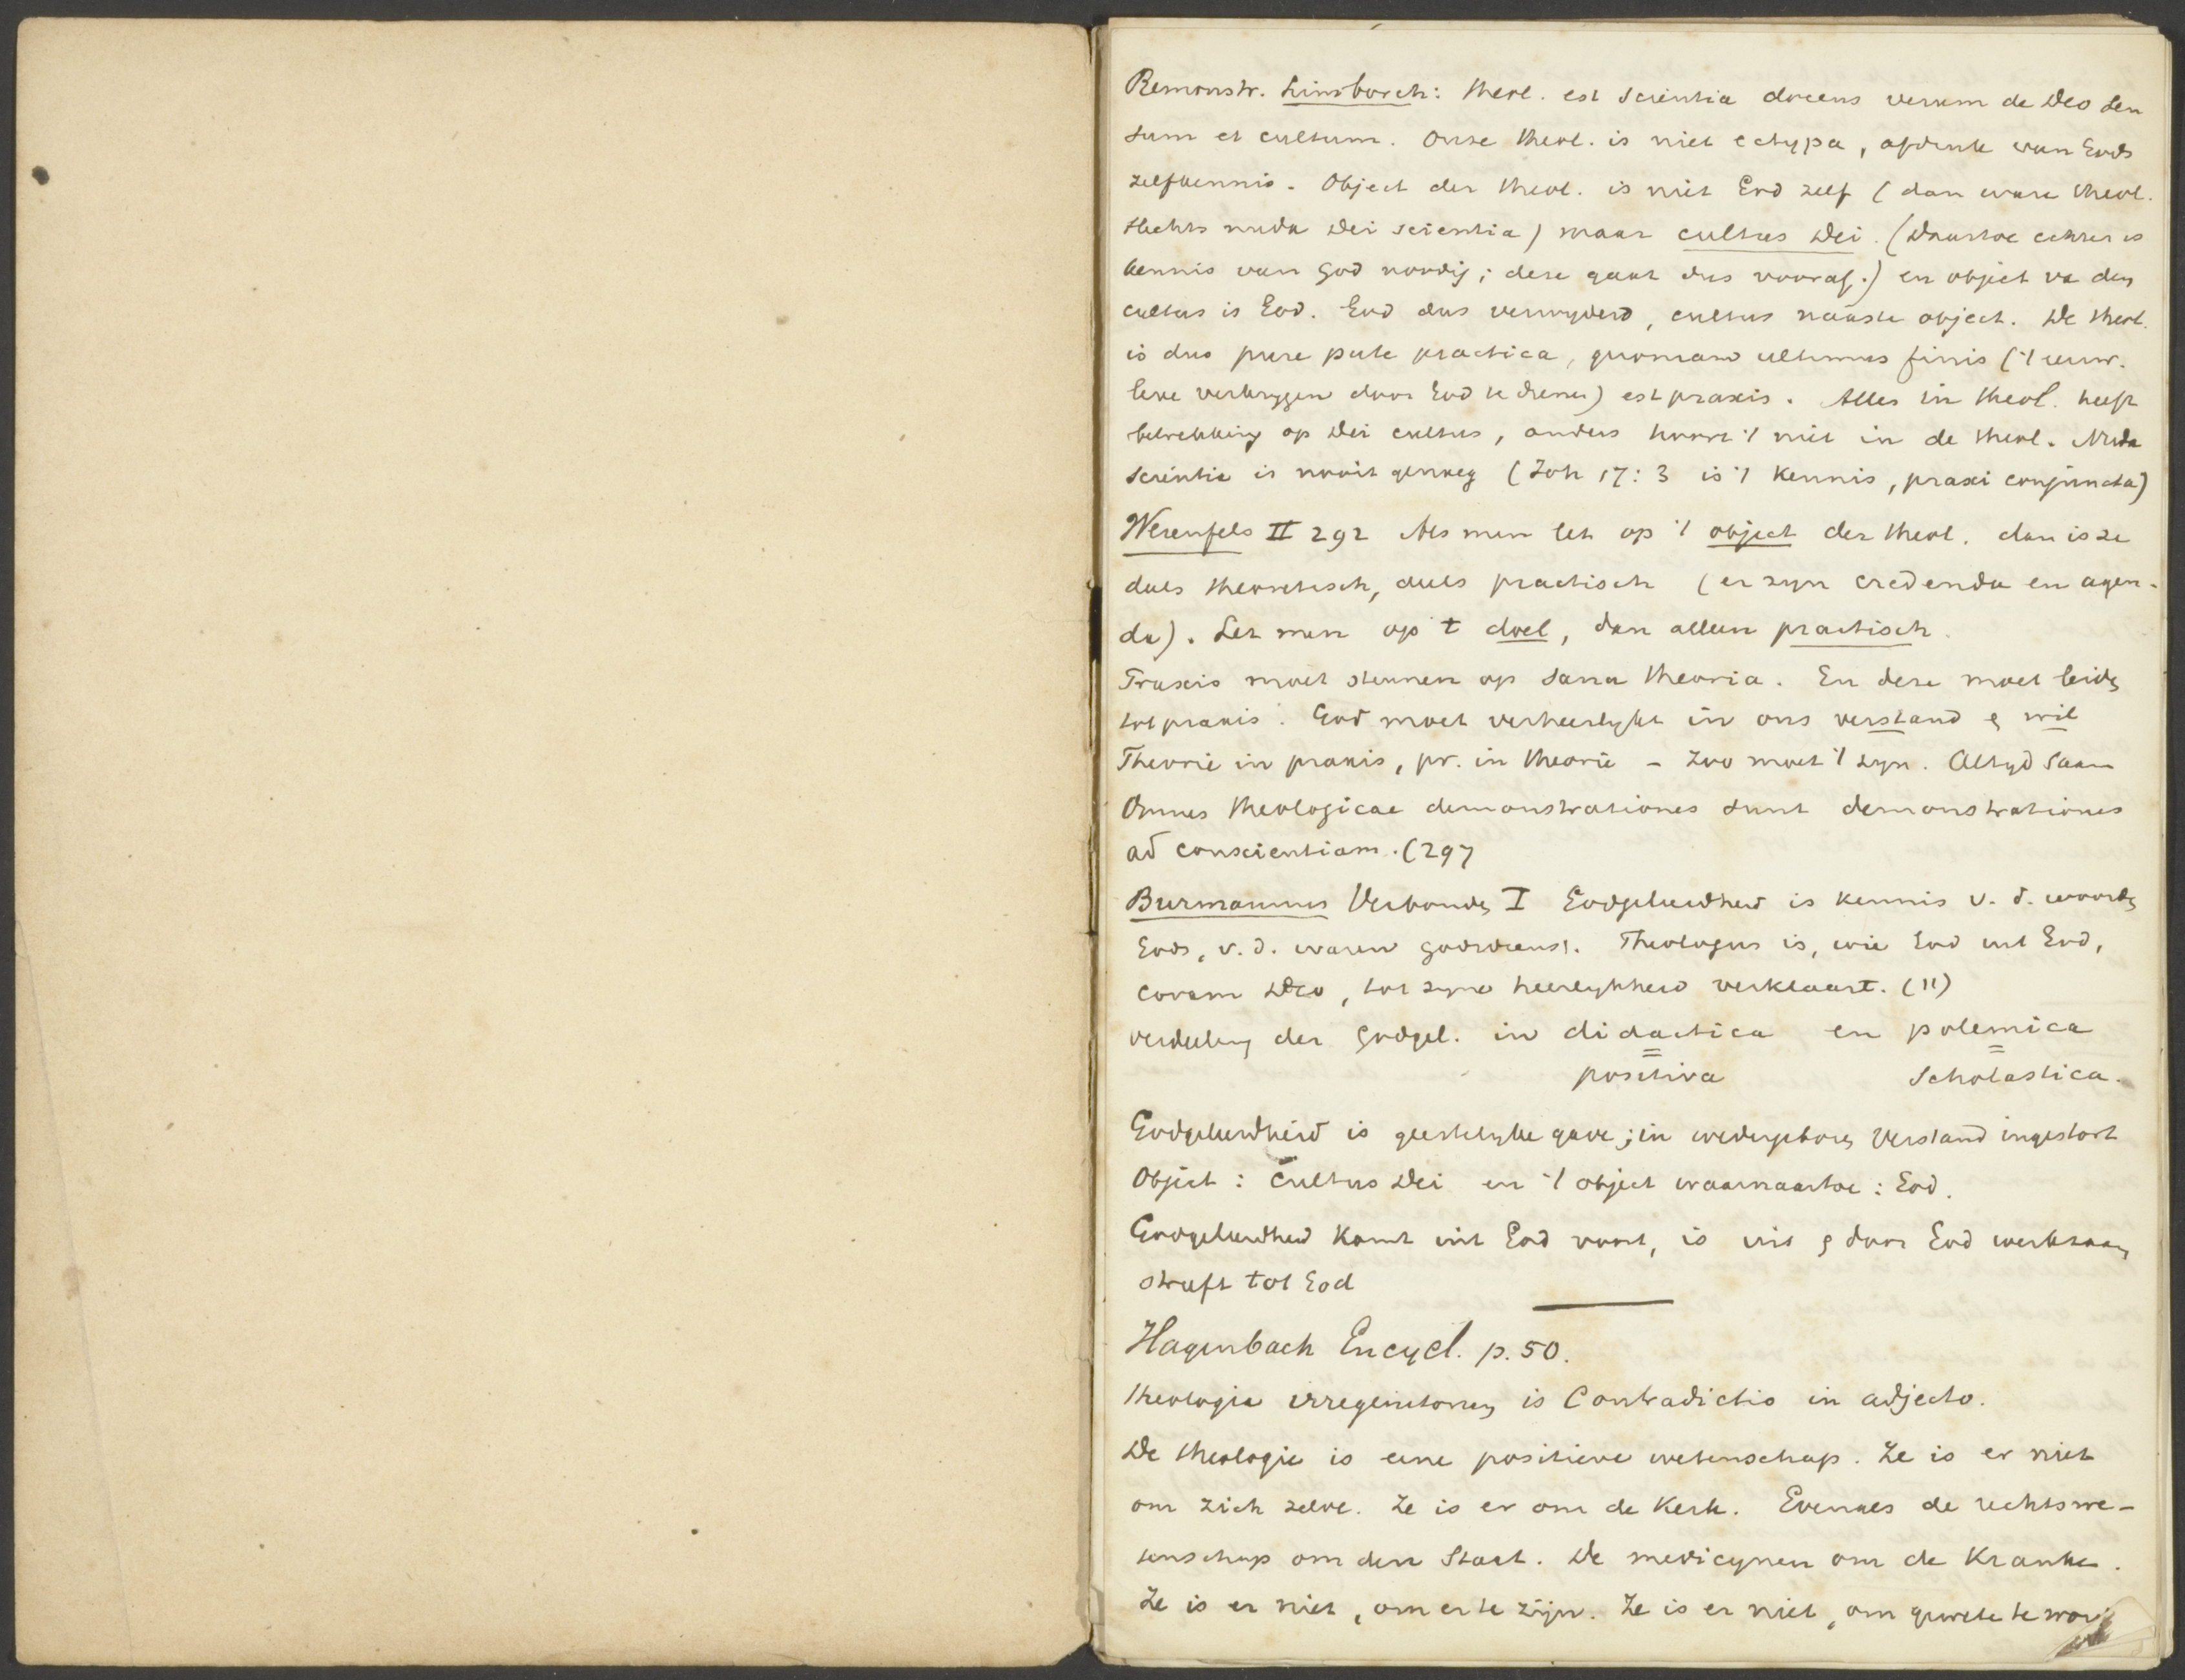 Remonstr. Limborch: theol. est scientia docens verum de Deo sen
sum et cultum. Onze theol. is niet ectypa, afdruk van Gods
zelfkennis. Object der theol. is niet God zelf (dan ware theol.
slechts nuda Dei scientia) maar cultus Dei. (Daartoe echter is
kennis van God nodig; deze gaat dus vooraf.) en object va den
cultus is God. God dus verwyderd, cultus naaste object. De theol.
is dus pure pute practica, quoniam ultimus finis ('t eeuw.
leve verkrygen door God te dienen) est praxis. Alles in theol. heeft
betrekking op Dei cultus, anders hoort 't niet in de theol. Nuda
scientia is nooit genoeg (Joh 17:3 is 't kennis, praxi conjuncta)
Werenfels II 292 Als men let op 't object der theol. dan is ze
deels theoretisch, deels practisch (er zyn credenda en agen-
da). Let men op t doel, dan alleen practisch.
Praxis moet steunen op sana theoria. En deze moet leiden
tot praxis. God moet verheerlykt in ons verstand en wil
Theorie in praxis, pr. in theorie - zoo moet 't zyn. Altyd saam
Omnes theologicae demonstrationes sunt demonstrationes
ad conscientiam. (297
Burmannus Verbonden I Godgeleerdheid is kennis v. d. woorden
Gods, v. d. waren godsdienst. Theologus is, wie God uit God,
coram Deo, tot zyne heerlykheid verklaart. (11)
verdeeling der Godgel. in didactica en polemica
= =
positiva scholastica.
Godgeleerdheid is geestelyke gave; in wedergeboren verstand ingestort
Object: Cultus Dei en 't object waarnaartoe: God.
Godgeleerdheid komt uit God voort, is uit en door God werkzaam
streeft tot God
Hagenbach Encycl. p. 50.
Theologia irregenitorum is Contradictio in adjecto.
De theologie is eene positieve wetenschap. Ze is er niet
om zich zelve. Ze is er om de Kerk. Evenals de rechtswe-
tenschap om den Staat. De medicynen om de Kranke.
Ze is er niet, om er te zijn. Ze is er niet, om geweten te wor